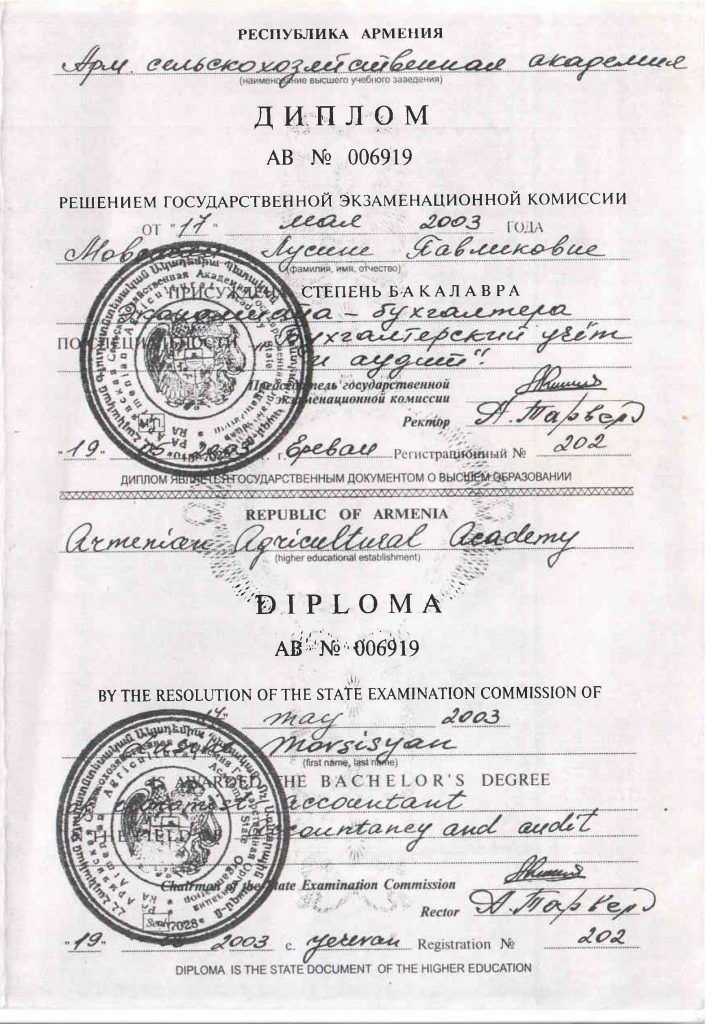 РЕСПУБЛИКА АРМЕНИЯ
Арм. сельскохозяйственная академия
(наименование высшего учебного заведения)
ДИПЛОМ
АВ № 006919
РЕШЕНИЕМ ГОСУДАРСТВЕННОЙ ЭКЗАМЕНАЦИОННОЙ КОМИССИИ
ОТ "17" мая 2003 ГОДА
Лусине Павликовне
(фамилия, имя, отчество)
ПРИСУЖДЕНА СТЕПЕНЬ БАКАЛАВРА
экономиста - бухгалтера
ПО СПЕЦИАЛЬНОСТИ „Бухгалтерский учёт
и аудит".
Председатель государственной
экзаменационной комиссии
Ректор
"19" 2003 г. Ереван Регистрационный № 202
ДИПЛОМ ЯВЛЯЕТСЯ ГОСУДАРСТВЕННЫМ ДОКУМЕНТОМ О ВЫСШЕМ ОБРАЗОВАНИИ
REPUBLIC OF ARMENIA
Armenian Agricultural Academy
(higher educational establishment)
DIPLOMA
АВ № 006919
BY THE RESOLUTION OF THE STATE EXAMINATION COMMISSION OF
"17" may 2003
Movsisyan
(first name, last name)
IS AWARDED THE BACHELOR'S DEGREE
economist accountant
THE FIELD OF accountancy and audit
Chairman of the State Examination Commission
Rector
"19" 2003 c. Yerevan Registration № 202
DIPLOMA IS THE STATE DOCUMENT OF THE HIGHER EDUCATION